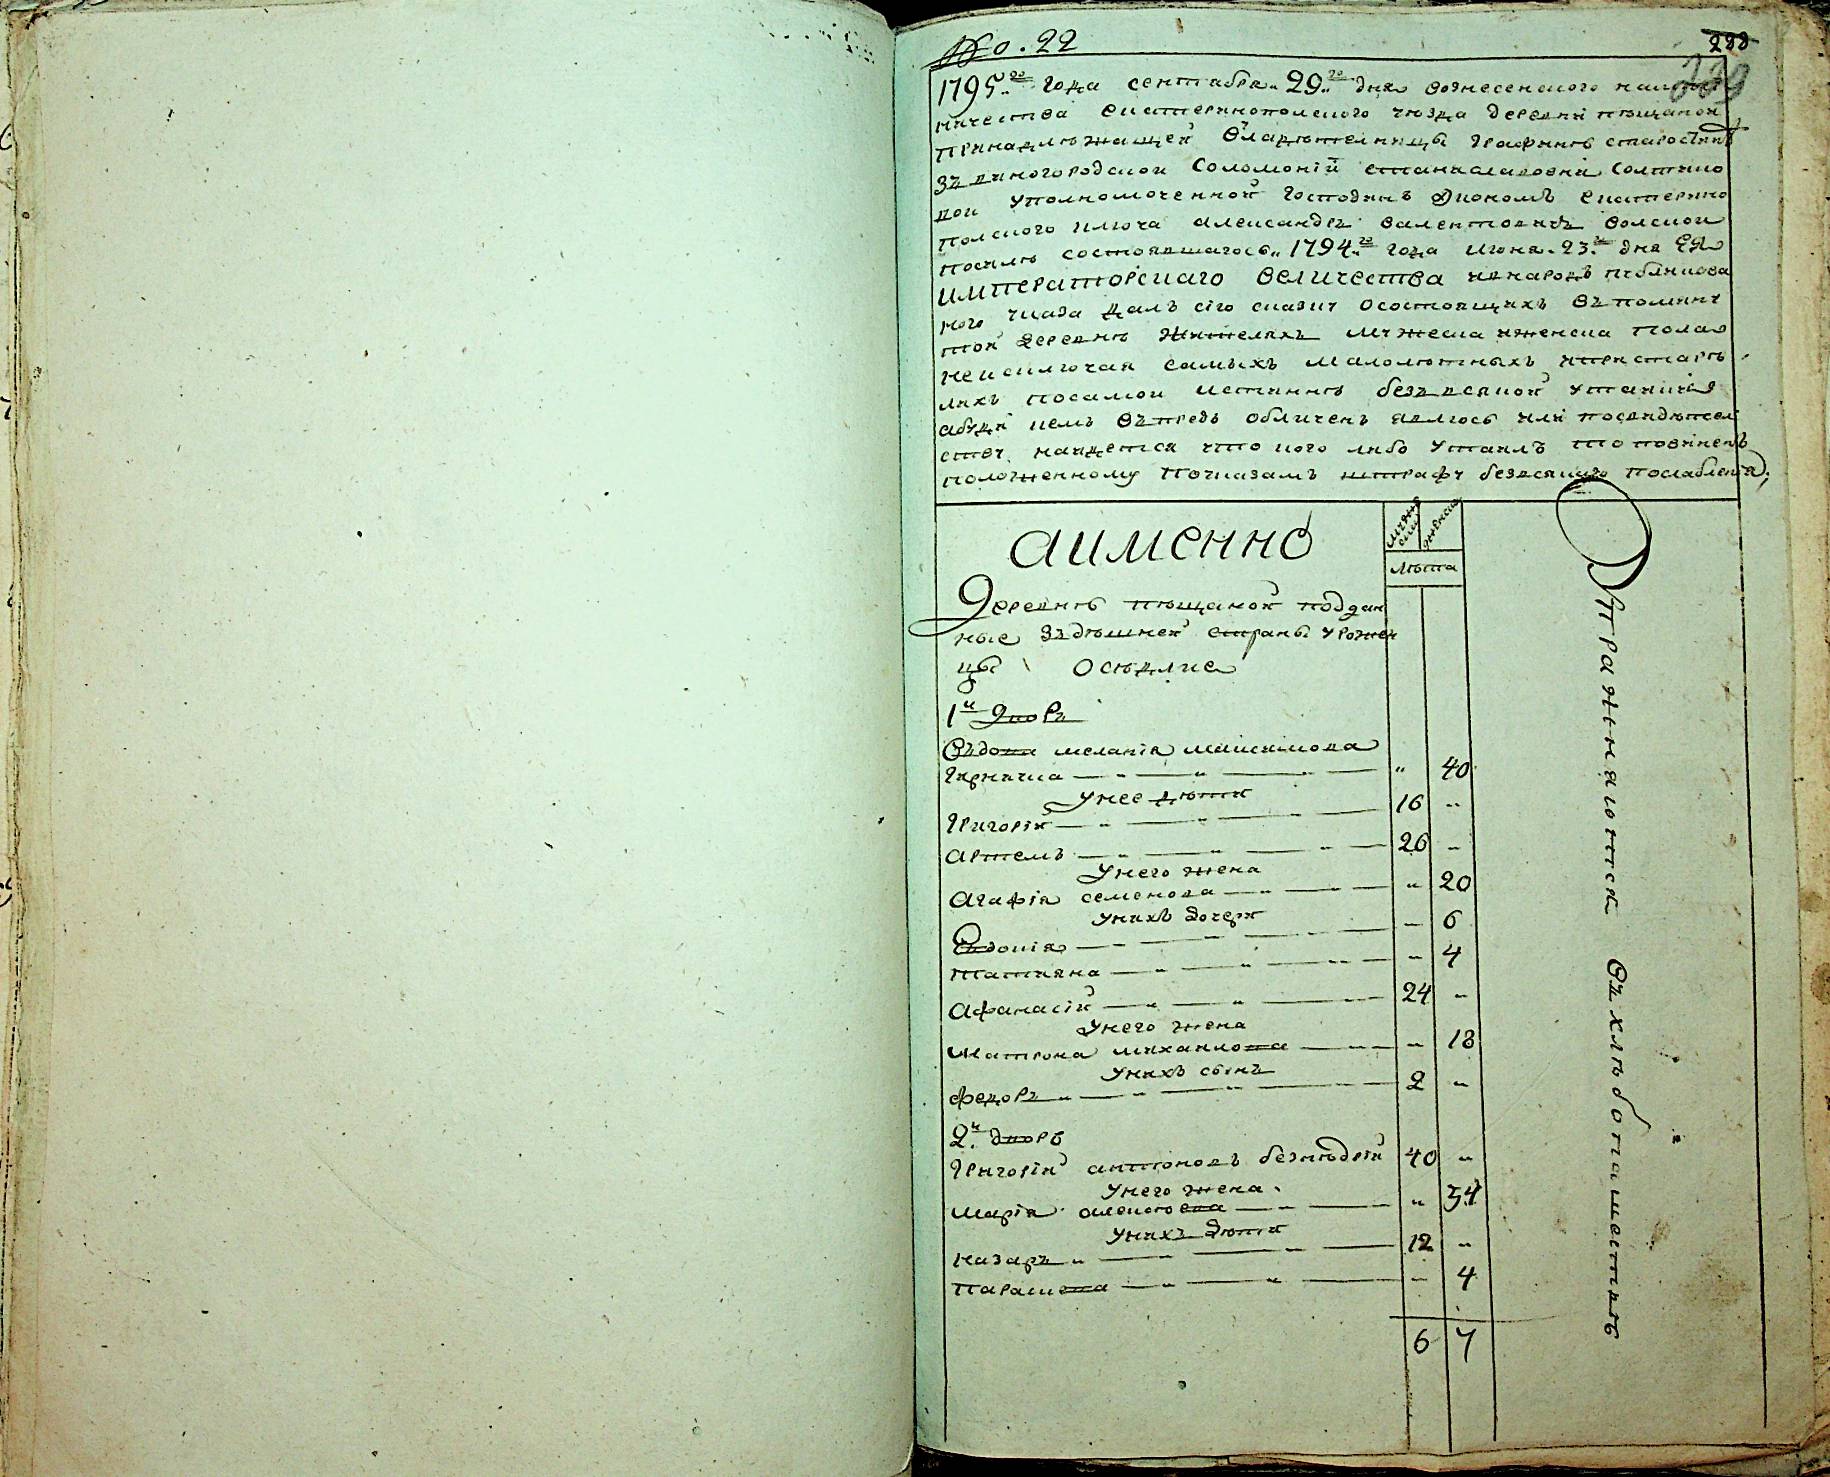 No. 22
288
289
1795.го года сентабря 29.го дня вознесенского намѣст
ничества екатеринополского уѣзда деревни пѣщаной
принадлѣжащей владѣтелницы графинѣ старостинѣ
звиногородской Соломоніи станиславовни Солтико
вой уполномоченной господинъ экономъ екатерино
полского ключа александръ валентовичъ волской
посилѣ состоявшагось 1794.го года июня 23.го дня Ея
императорскаго величества внародъ публикова
ного указа далъ сію сказку осостоящихъ въпомяну
той деревнѣ жителяхъ мужеска иженска пола
неисключая самыхъ малолѣтныхъ ипристарѣ
лихъ посамой истиннѣ безвсякой утайки
абуди чемъ въпредь обличенъ явлюсь или посвидѣтел
ству найдется что кого либо утаилъ то повиненъ
положенному поуказамъ штрафу безвсякого послабленія;
аименно
мужеска
женска
лѣта
Деревнѣ пѣщаной поддан
ные зъдѣшней страны урожен
цы осѣдлие
1й дворъ
Въдова меланія максимова
Гарнична " 40
Унее дѣти
Григорій 16 "
артемъ 26 "
Унего жена
агафія семенова " 20
Унихъ дочери
Евдокія " 6
татияна " 4
афанасій 24 "
Унего жена
Матрона михаилова " 18
Унихъ сынъ
федоръ 2 "
2й дворъ
Григорій антоновъ 40 "
Унего жена
Марія алексѣева " 34
Унихъ дѣти
назаръ 12 "
параскева " 4
6 7
Упражняются въхлѣбопашествѣ